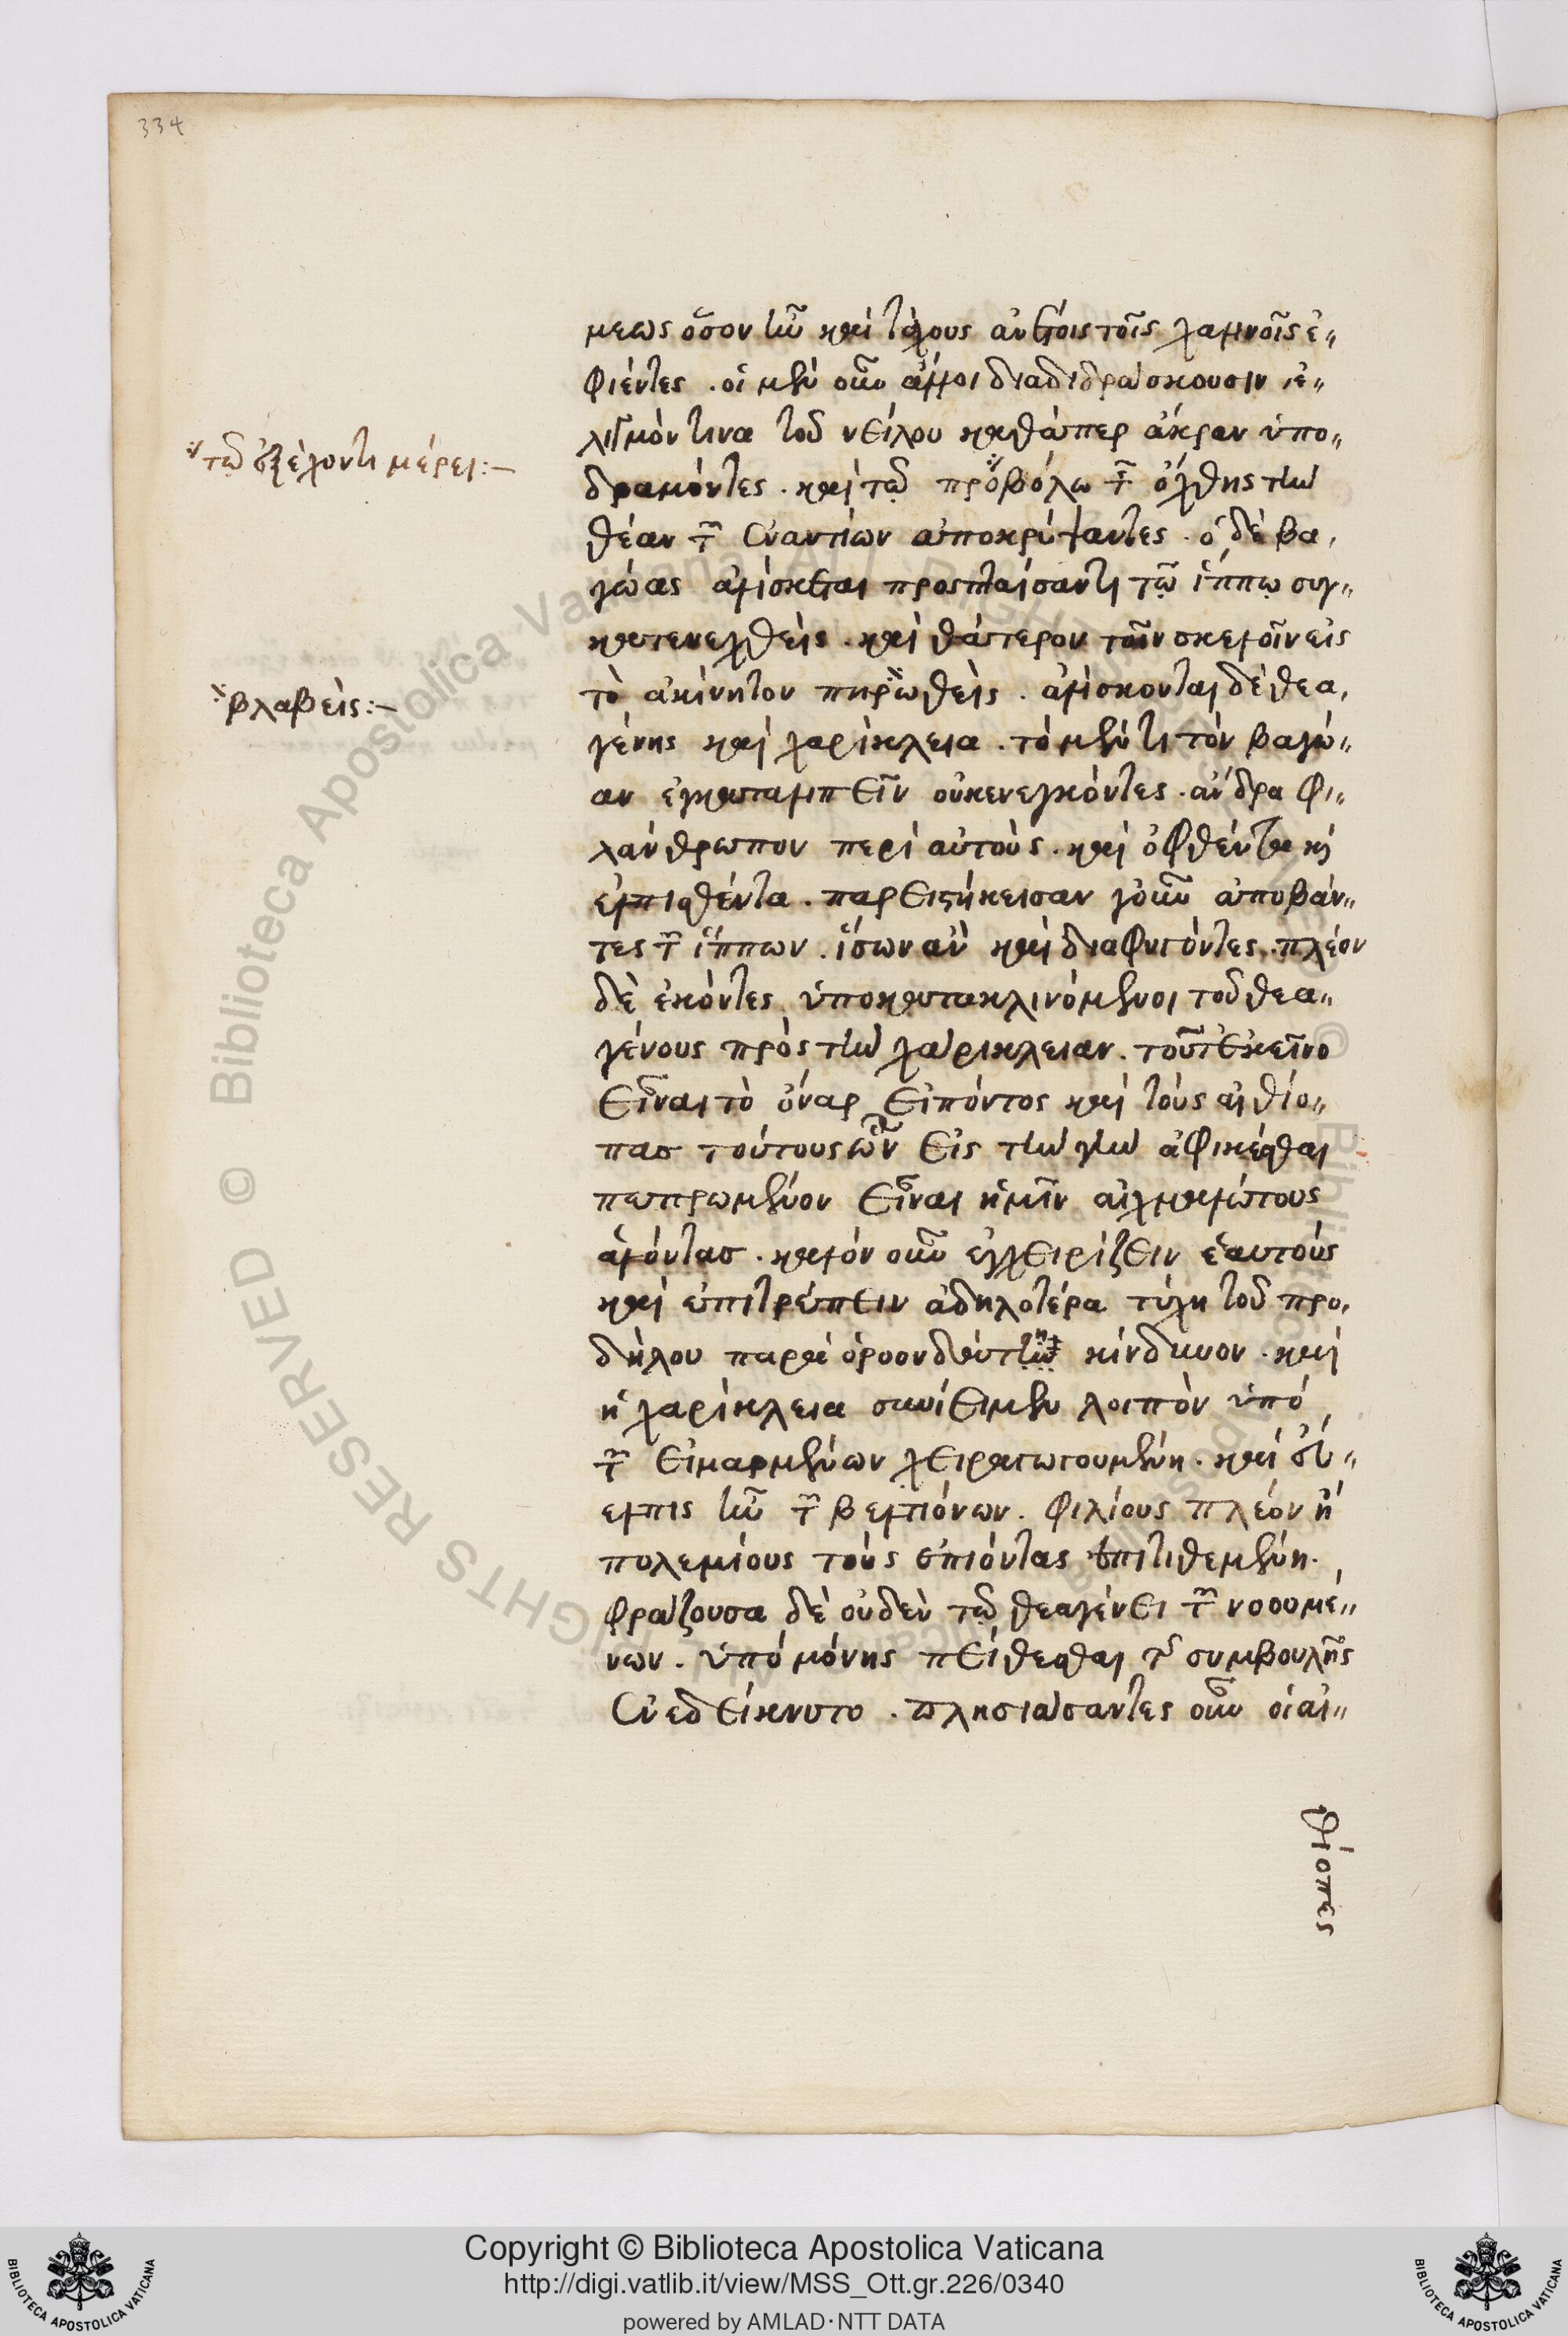 334
μεως ὅσον ἦν καὶ τάχους αὐτοῖς τοῖς χαλινοῖς ἐ„
φιέντες . οἱ μὲν οὖν ἄλλοι διαδιδράσκουσιν ἑ„
λιγμόν τινα τοῦ νείλου καθάπερ ἄκραν ὑπο„
δραμόντες . καὶ τῷ προβόλω τῆς ὄχθης τὴν
θέαν τῶν ἐναντίων ἀποκρύψαντες . ὁ δὲ βα,
γώας ἁλίσκεται προσπταίσαντι τῷ ἵππῳ συγ„
κατενεχθείς . καὶ θάτερον τοῖν σκελοῖν εἰς
τὸ ἀκίνητον πηρωθείς . ἁλίσκονται δὲ θεα,
γένης καὶ χαρίκλεια . τὸ μέν τι τὸν βαγώ„
αν ἐγκαταλιπεῖν οὐκ ἐνεγκόντες . ἄνδρα φι„
λάνθρωπον περὶ αὐτούς . καὶ ὀφθέντα καὶ
ἐλπισθέντα . παρειστήκεισαν γοῦν ἀποβάν„
τες τῶν ἵππων . ἴσων ἂν καὶ διαφυγόντες . πλέον
δὲ ἑκόντες ὑποκατακλινόμενοι τοῦ θεα„
γένους πρὸς τὴν χαρίκλειαν . τοῦτ ἐκεῖνο
εἶναι τὸ ὄναρ εἰπόντος καὶ τοὺς αἰθίο„
πας τούτους ὧν εἰς τὴν γῆν ἀφικέσθαι
πεπρωμένον εἶναι ἡμῖν αἰχμαλώτους
ἁλόντας . καλὸν οὖν ἐγχειρίζειν ἑαυτούς
καὶ ἐπιτρέπειν ἀδηλοτέρα τύχη τοῦ προ,
δήλου παρὰ ὀροονδάτῃ κίνδυνον . καὶ
ἡ χαρίκλεια συνίει μὲν λοιπὸν ὑπό
τῶν εἱμαρμένων χειραγωγουμένη . καὶ εὔ„
ελπις ἦν τῶν βελτιόνων . φιλίους πλέον ἢ
πολεμίους τοὺς ἐπιόντας ἐπιτιθεμένη .
φράζουσα δὲ οὐδὲν τῷ θεαγένει τῶν νοουμέ„
νων . ὑπὸ μόνης πείθεσθαι τῆς συμβουλῆς
ἐνεδείκνυτο . πλησιάσαντες οὖν οἱ αἰ„
θίοπες
τῷ ἐξέχοντι μέρει :–
βλαβείς :–
© Biblioteca Apostolica Vaticana ALL RIGHTS RESERVED
Copyright © Biblioteca Apostolica Vaticana
http://digi.vatlib.it/view/MSS_Ott.gr.226/0340
powered by AMLAD·NTT DATA
BIBLIOTECA APOSTOLICA VATICANA
BIBLIOTECA APOSTOLICA VATICANA